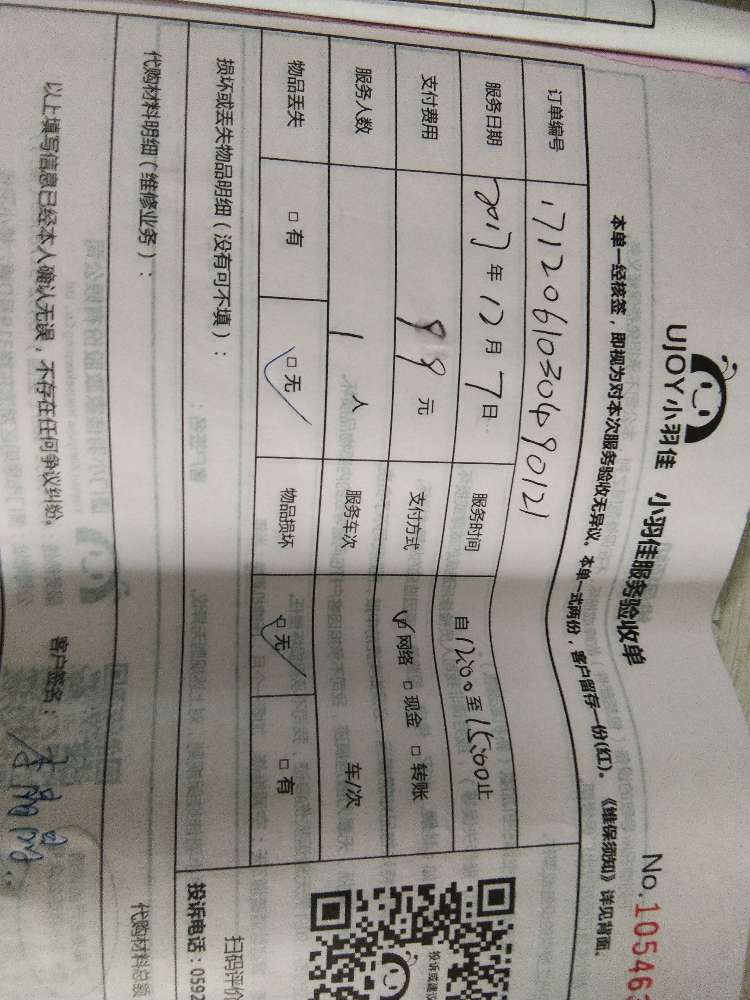 UJOY小羽佳 小羽佳服务验收单 No.105463
本单一经核签，即视为对本次服务验收无异议。本单一式两份，客户留存一份(红)。《维保须知》详见背面.
订单编号 17120610304980121
服务日期 2017年12月7日 服务时间 自12:00至15:00止
支付费用 99元 支付方式 网络 现金 转账
服务人数 1人 服务车次 车/次
物品丢失 有 无 物品损坏 无 有
损坏或丢失物品明细（没有可不填）：
代购材料明细（维修业务）： 代购材料总额
以上填写信息已经本人确认无误，不存在任何争议纠纷。 客户签名：
投诉或建议
扫码评价
投诉电话：0592